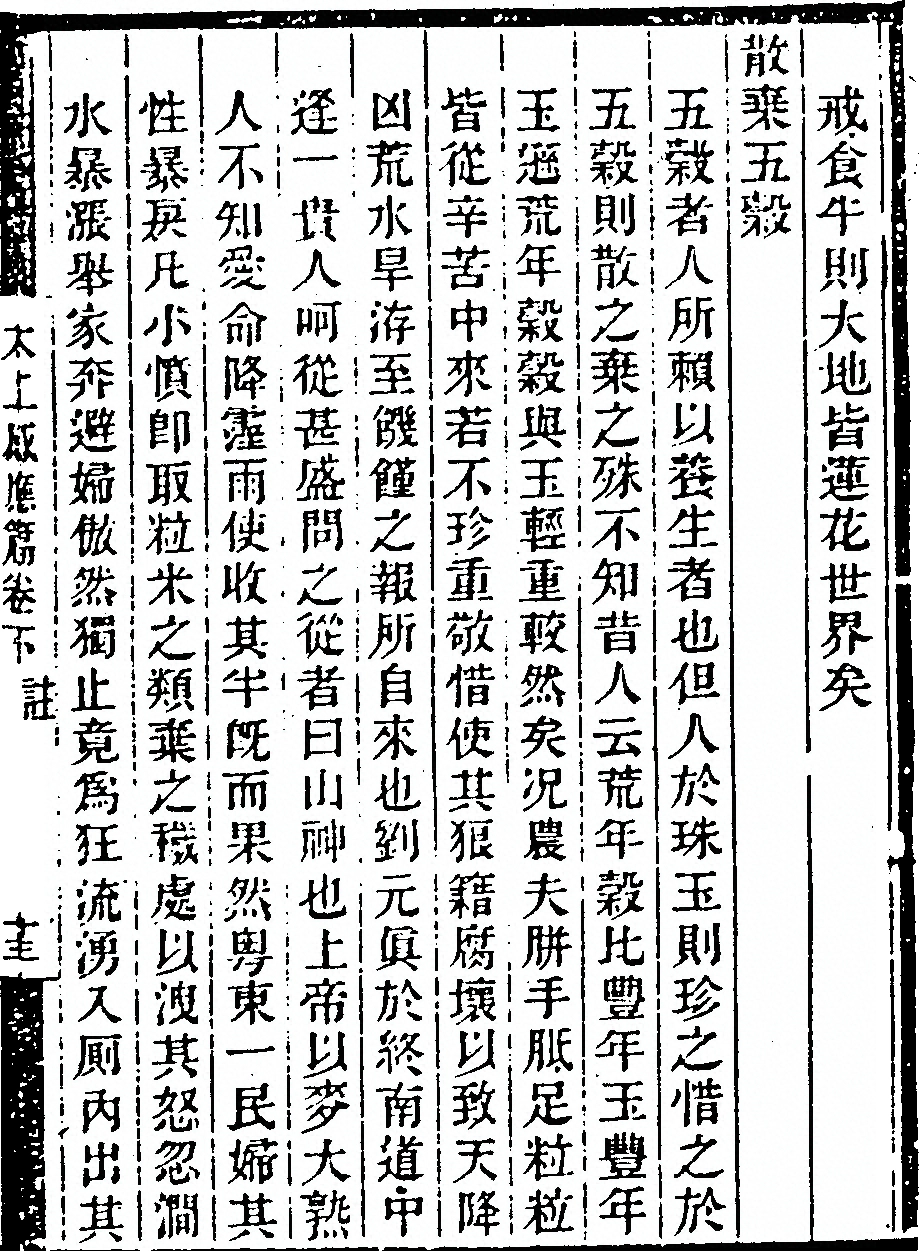 戒食牛則大地皆蓮花世界矣
散棄五穀
五穀者人所賴以養生者也但人於珠玉則珍之惜之於
五穀則散之棄之殊不知昔人云荒年穀比豐年玉豐年
玉遜荒年穀穀與玉輕重較然矣况農夫胼手胝足粒粒
皆從辛苦中來若不珍重敬惜使其狼籍腐壞以致天降
凶荒水旱洊至饑饉之報所自來也劉元眞於終南道中
逢一貴人呵從甚盛問之從者曰山神也上帝以麥大熟
人不知愛命降靈雨使收其半旣而果然粤東一民婦其
性暴戾凡小憤即取粒米之類棄之穢處以洩其怒忽澗
水暴漲舉家奔避婦傲然獨止竟爲狂流湧入厠內出其
太上感應篇卷下 註